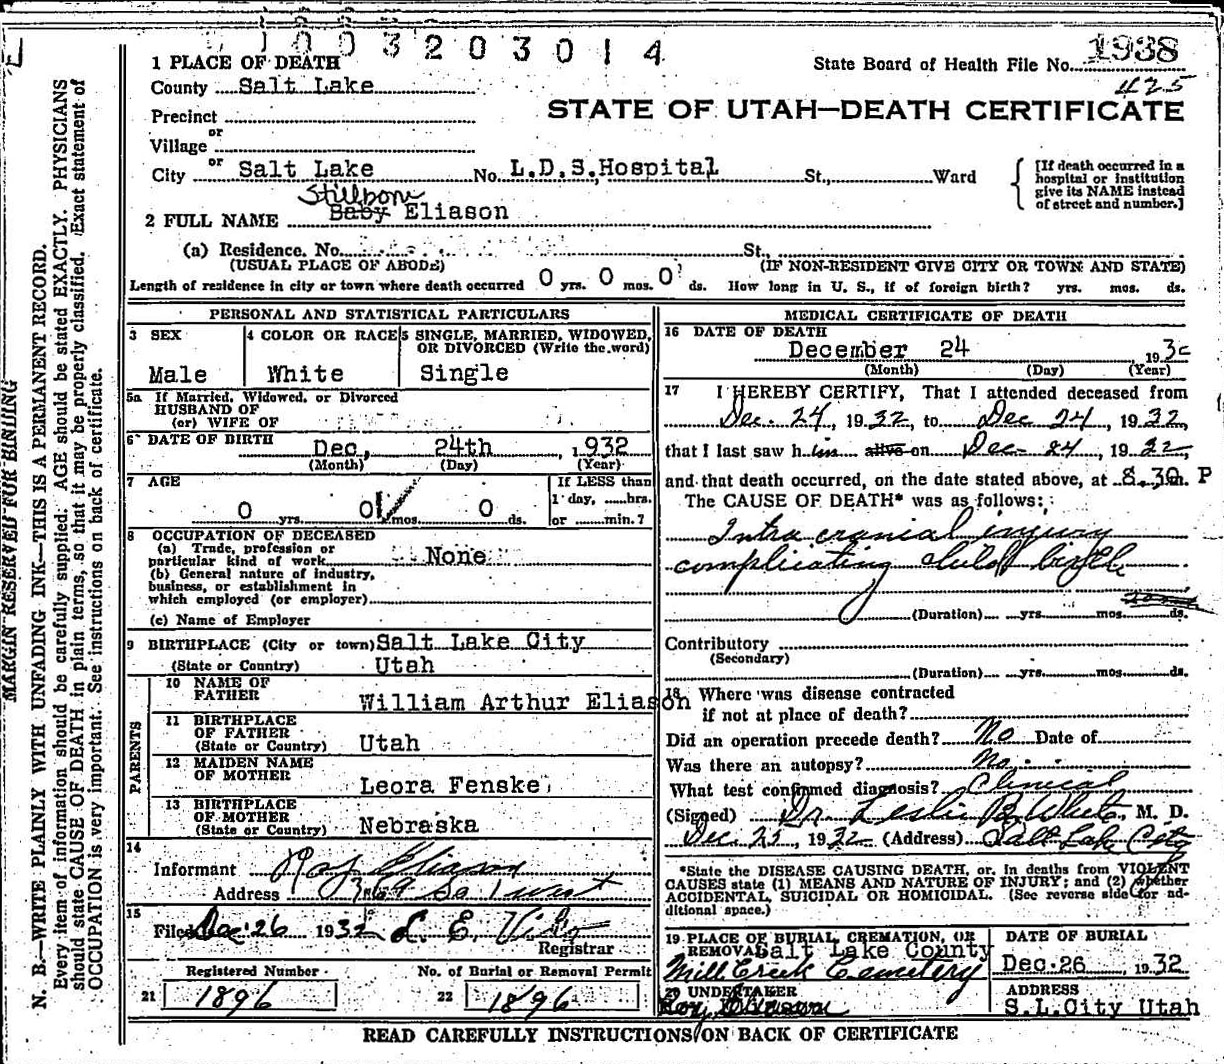 1003203014
State Board of Health File No. 1938
425
1 PLACE OF DEATH
County Salt Lake
STATE OF UTAH—DEATH CERTIFICATE
Precinct
or
Village
or
City Salt Lake No. L.D.S.Hospital St., Ward
[If death occurred in a hospital or institution give its NAME instead of street and number.]
Stillborn
2 FULL NAME Baby Eliason
(a) Residence. No. St.,
(USUAL PLACE OF ABODE) (IF NON-RESIDENT GIVE CITY OR TOWN AND STATE)
Length of residence in city or town where death occurred 0 yrs. 0 mos. 0 ds. How long in U. S., if of foreign birth? yrs. mos. ds.
PERSONAL AND STATISTICAL PARTICULARS
3 SEX
Male
4 COLOR OR RACE
White
5 SINGLE, MARRIED, WIDOWED, OR DIVORCED (Write the word)
Single
5a If Married, Widowed, or Divorced
HUSBAND OF
(or) WIFE OF
6 DATE OF BIRTH Dec, 24th, 1932
(Month) (Day) (Year)
7 AGE
0 yrs. 0 mos. 0 ds.
If LESS than
1 day, hrs.
or min.?
8 OCCUPATION OF DECEASED
(a) Trade, profession or
particular kind of work None
(b) General nature of industry,
business, or establishment in
which employed (or employer)
(c) Name of Employer
9 BIRTHPLACE (City or town) Salt Lake City
(State or Country) Utah
PARENTS
10 NAME OF
FATHER William Arthur Eliason
11 BIRTHPLACE
OF FATHER
(State or Country) Utah
12 MAIDEN NAME
OF MOTHER Leora Fenske
13 BIRTHPLACE
OF MOTHER
(State or Country) Nebraska
14
Informant Roy Eliason
Address So 1 west
15
Filed Dec 26 1932
Registrar
Registered Number
21 1896
No. of Burial or Removal Permit
22 1896
MEDICAL CERTIFICATE OF DEATH
16 DATE OF DEATH
December 24 193
(Month) (Day) (Year)
17 I HEREBY CERTIFY, That I attended deceased from
Dec. 24, 1932, to Dec 24, 1932,
that I last saw him alive on Dec. 24, 1932,
and that death occurred, on the date stated above, at 8.30 m. P
The CAUSE OF DEATH* was as follows:
Intra cranial injury
complicating child birth
(Duration) yrs. mos. ds.
Contributory
(Secondary)
(Duration) yrs. mos. ds.
18 Where was disease contracted
if not at place of death?
Did an operation precede death? No Date of
Was there an autopsy? No.
What test confirmed diagnosis? Clinical
(Signed) Dr. Leslie B. White, M. D.
Dec. 25, 1932 (Address) Salt Lake City
*State the DISEASE CAUSING DEATH, or, in deaths from VIOLENT
CAUSES state (1) MEANS AND NATURE OF INJURY; and (2) whether
ACCIDENTAL, SUICIDAL OR HOMICIDAL. (See reverse side for ad-
ditional space.)
19 PLACE OF BURIAL, CREMATION, OR
REMOVAL Salt Lake County
Mill Creek Cemetery
DATE OF BURIAL
Dec.26, 1932
20 UNDERTAKER
Roy Eliason
ADDRESS
S.L.City Utah
READ CAREFULLY INSTRUCTIONS ON BACK OF CERTIFICATE
MARGIN RESERVED FOR BINDING
N. B.—WRITE PLAINLY WITH UNFADING INK—THIS IS A PERMANENT RECORD.
Every item of information should be carefully supplied. AGE should be stated EXACTLY. PHYSICIANS
should state CAUSE OF DEATH in plain terms, so that it may be properly classified. Exact statement of
OCCUPATION is very important. See instructions on back of certificate.